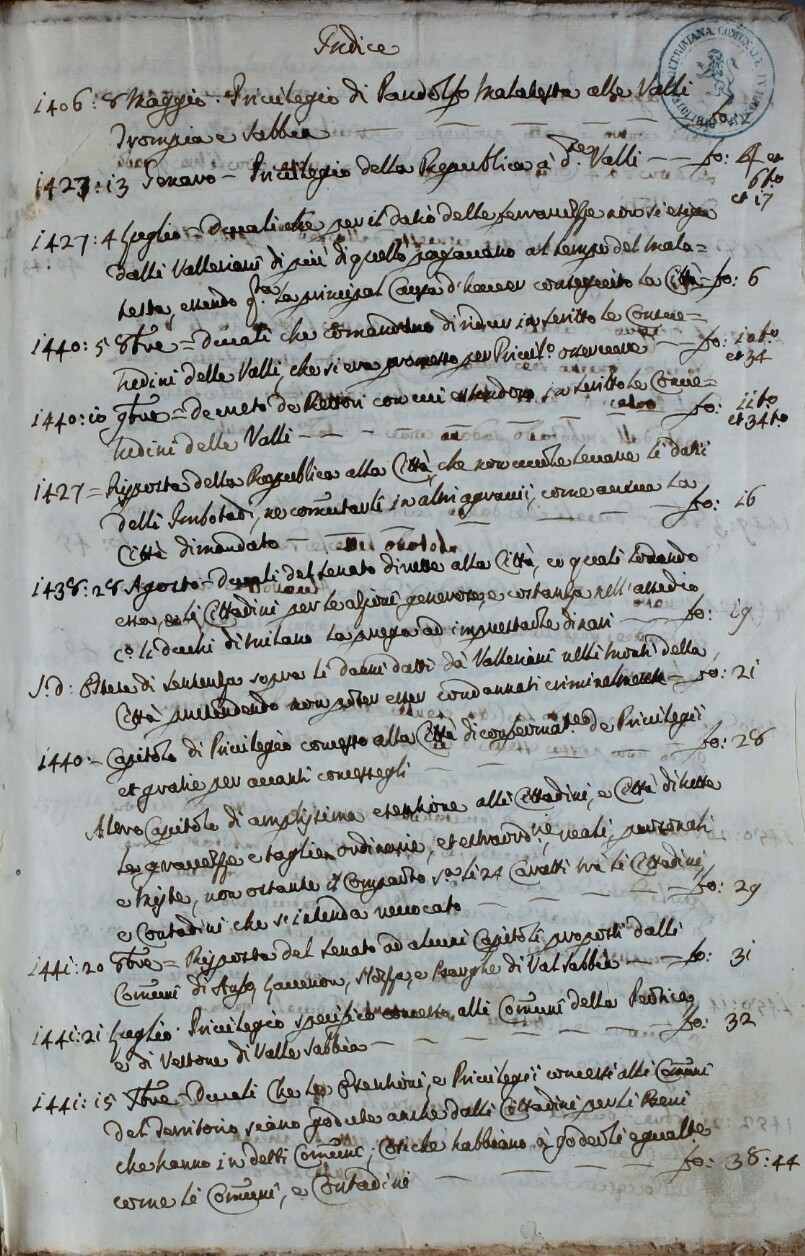 Indice
BIBLIOTECA QUERINIANA COMUNALE DI BRESCIA
1406: 8 Maggio - Privilegio di Pandolfo Malatesta alle Valli
Trompia e Sabbia fo:
1427: 13 Genaro - Privilegio della Republica à d.te Valli fo: 4 et
6 to
et 17
1427: 4 Luglio - Ducali che per il datio delle ferrarezze non si exiga
dalli Valleriani di più di quello pagavano al tempo del Mala=
testa, essendo q.ta la principal causa d'haver conseguito la Città fo: 6
1440: 5 8bre = Ducali che comandano di ridur in scritto le Consue=
tudini delle Valli, che si era promesso per Privil.o osservare fo: 10 to
et 34
1440: 10 9bre = Decreto de Rettori con cui estendono in scritto le Consue=
tudini delle Valli fo: 11 to
et 34 to
1427 = Risposta della Republica alla Città, che non vuole levare li datii
delli Imbotadi, ne comutarli in altri agravii, come aveva la
Città dimandato fo: 16
1438: 28 Agosto - Ducali del Senato dirette alla Città, co quali lodando
essa, e li Cittadini per le azioni generose, e costanza nell'assedio
co li duchi di Milano la prega ad imprestarle dinari fo: 19
S: d: Stesa di sentenza sopra li danni datti da Valleriani nelli monti della
Città pretendendo non poter esser condannati criminalmente fo: 21
1440 - Capitolo di Privilegio concesso alla Città di conferma.ne de Privilegii
et gratie per avanti concessegli fo: 28
Altro Capitolo di amplissima esentione alli Cittadini, e Città di tutte
le gravezze e taglie ordinarie, et estraord.rie, reali, personali
e miste, non ostante il Compartito fra le 24 Caratti trà li Cittadini
e Contadini che s'intenda revocato fo: 29
1441: 20 8bre = Risposta del Senato ad alcuni Capitoli proposti dalli
Comuni di Anfo, Lavenon, e Presegie di Val Sabbia fo: 31
1441: 21 Luglio - Privilegio specifico concesso alli Comuni della
e di Vestone di Valle Sabbia fo: 32
1441: 15 Xbre - Ducali che le Esentioni, e Privilegii concessi alli Comuni
del Territorio siano godute anche dalli Cittadini per li Beni
che hanno in detti Comuni, cosiche habbiano à goderli egualm.te
come li Comuni, e Contadini fo: 38: 44